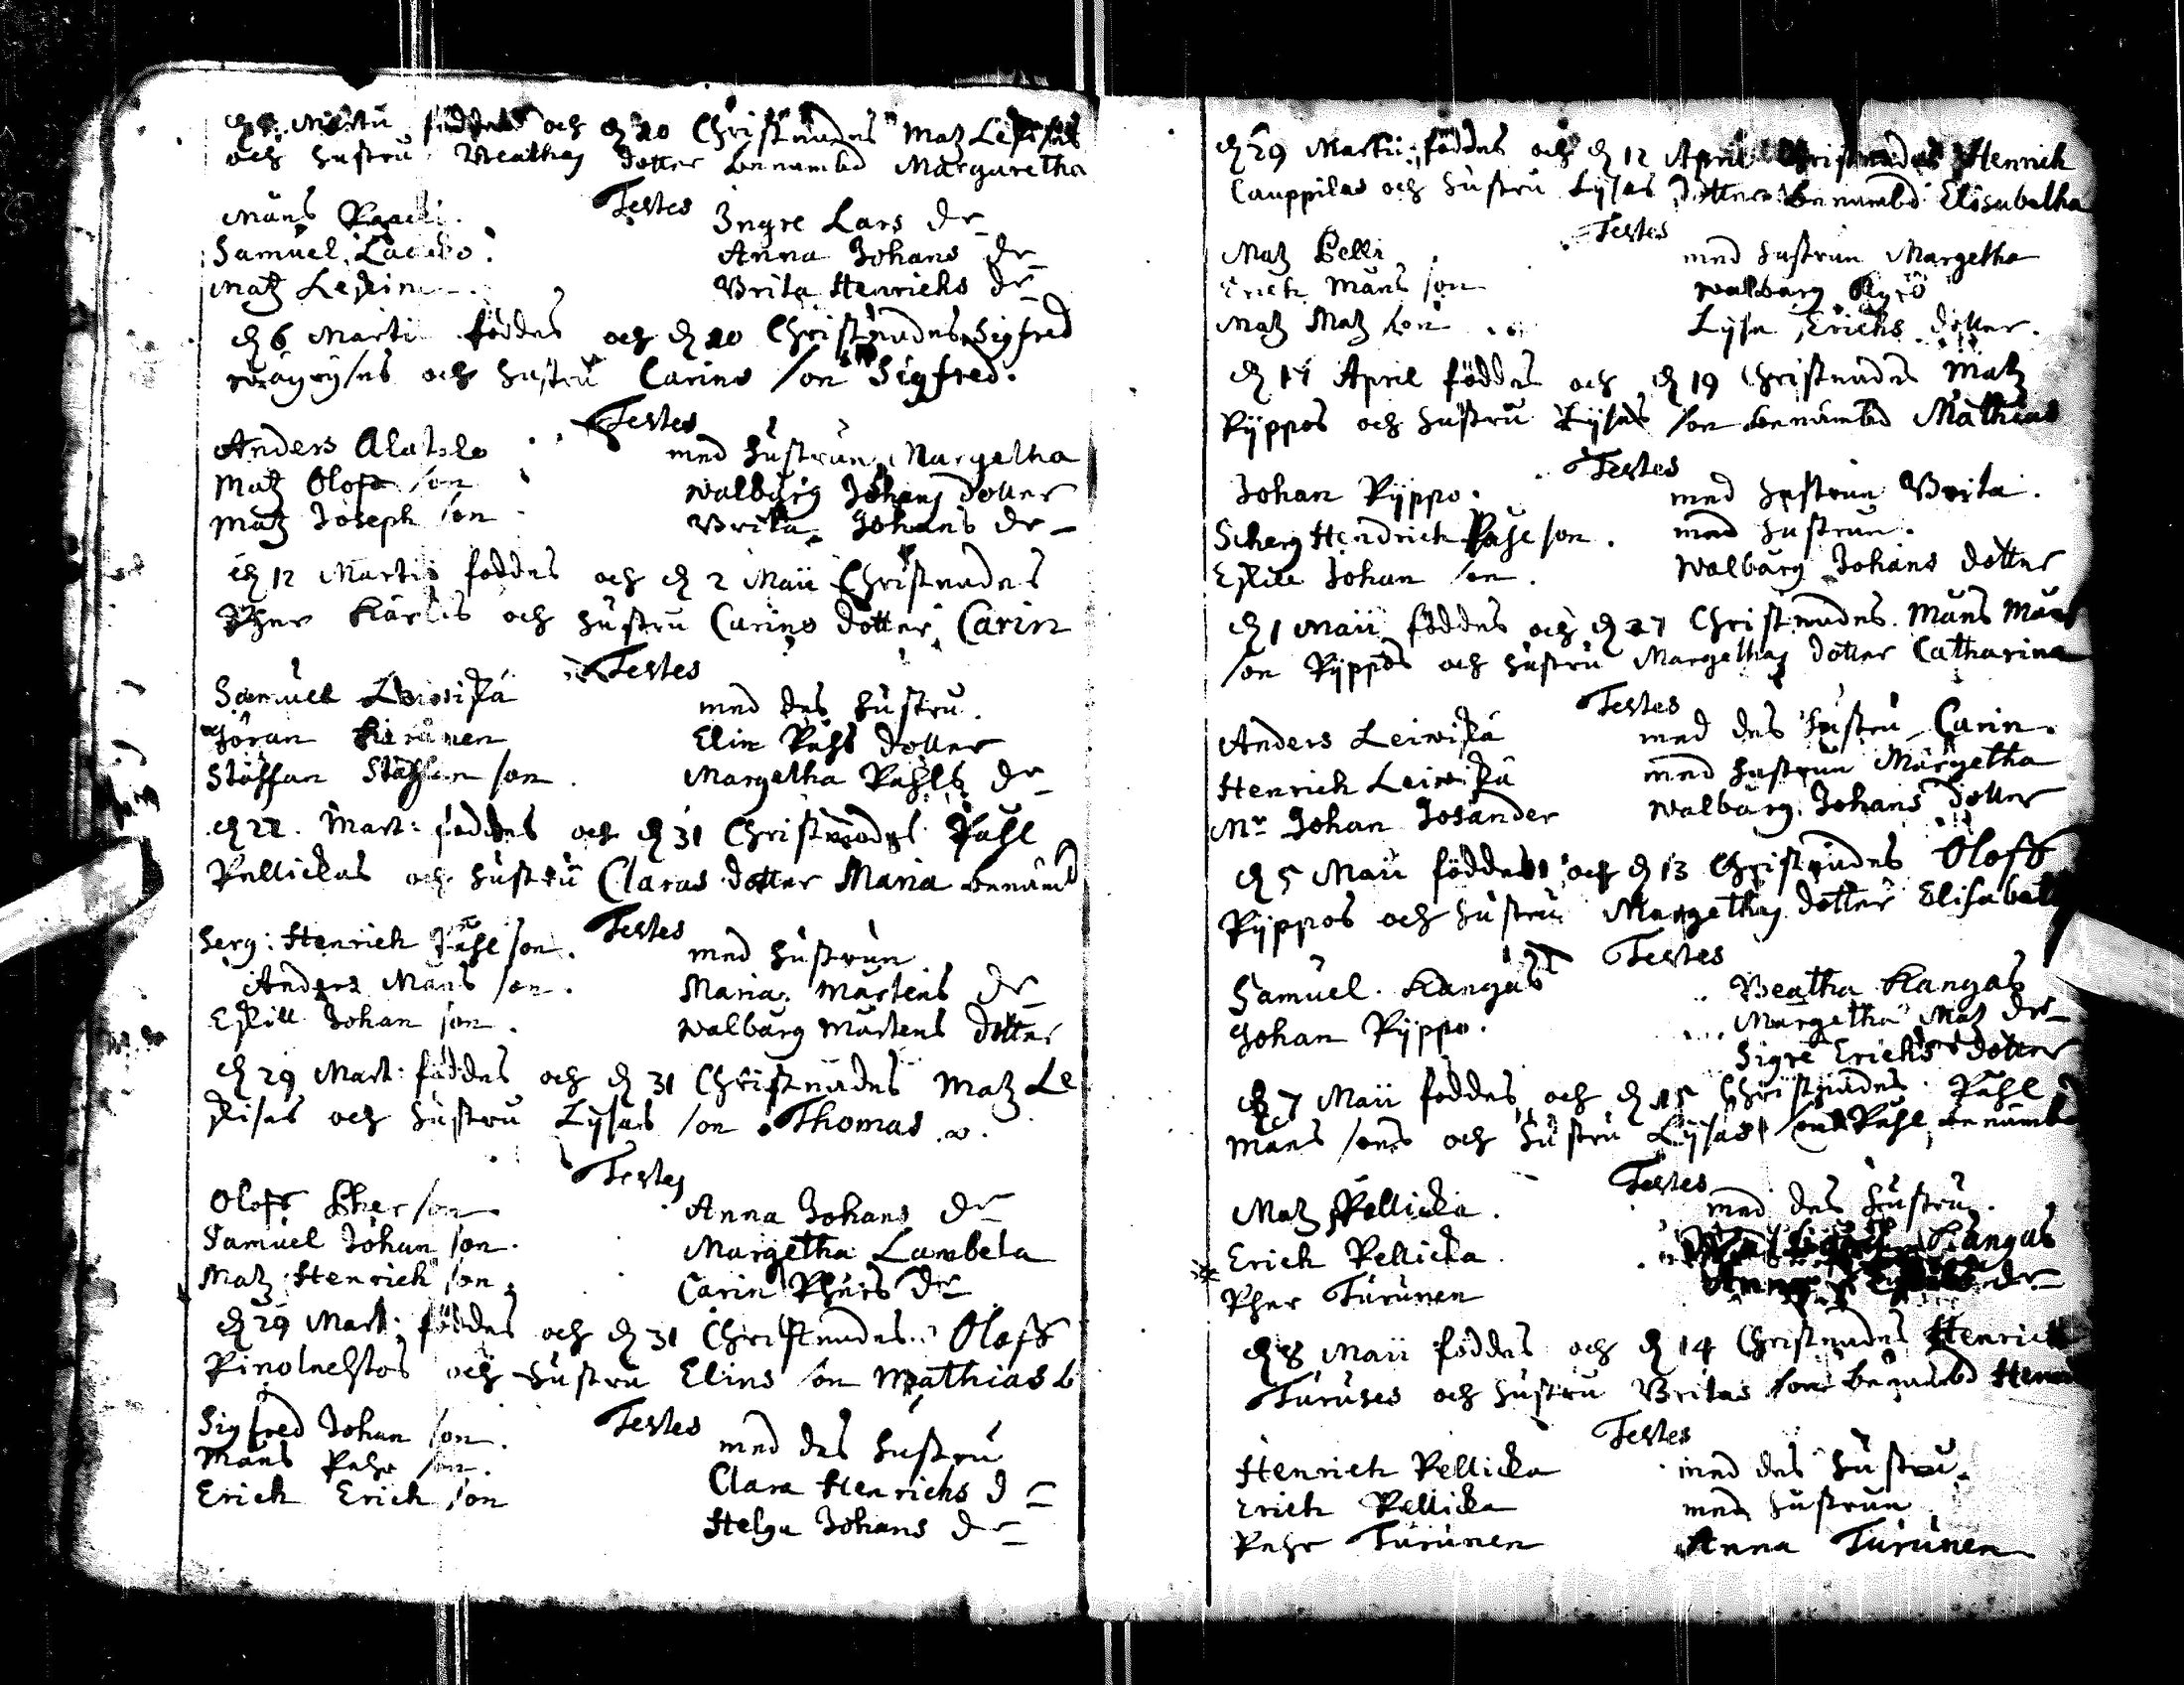 Martii föddes och d 20 Christnades Matz
och hustru Beathas dotter benembd Margaretha
Testes
Måns Ingre Lars dr
Samuel Anna Johans dr
Matz Brita Henrichs dr
d 6 Martii föddes och d 20 Christnades Sigfred
och hustru Carins son Sigfred.
Testes
Anders Alatalo med hustrun Margetha
Matz Olofs son Walborg Johans dotter
Matz Joseph son Brita Johans dr
d 12 Martii föddes och d 2 Maii Christnades
och hustru Carins dotter Carin
Testes
Samuel Leiviskä med des hustru.
Göran Elin Påhls dotter
Staffan Staffan son. Margetha Påhls dr
d 22. Mart: föddes och d 31 Christnades Påhl
Pellickas och hustru Claras dotter Maria benämd
Testes
Serg: Henrich Påhl son. med hustrun
Anders Måns son. Maria Mårtens dr
Eskill Johan son. Walborg Mårtens dotter
d 29 Mart: föddes och d 31 Christnades Matz Le
skises och hustru Lysas son Thomas
Testes
Oloff Pher son Anna Johans dr
Samuel Johan son. Margetha Lambela
Matz Henrich son. Carin Phers dr
d 29 Mart: föddes och d 31 Christnades Oloff
och hustru Elins son Mathias b
Testes
Sigfred Johan son. med des hustru
Måns Pehr son. Clara Henrichs d
Erich Erich son Helga Johans dr
d 29 Martii föddes och d 12 April Christnades Henrich
Cauppilas och hustru Lysas dotter benembd Elisabetha
Testes
Matz Pelli med hustrun Margetha
Erich Måns son Walborg
Matz Matz son Lysa Erichs dotter.
d 14 April föddes och d 19 Christnades Matz
Ryppos och hustru Lysas son benämbd Mathias
Testes
Johan Ryppo. med hustrun Brita.
Hendrich Påhl son. med hustrun.
Eskill Johan son. Walborg Johans dotter
d 1 Maii föddes och d 27 Christnades. Måns Måns
son Ryppos och hustru Margethas dotter Catharina
Testes
Anders Leiviskä med des hustru Carin.
Henrich Leiviskä med hustrun Margetha
Mr Johan Josander Walborg Johans dotter
d 5 Maii föddes och d 13 Christnades Oloff
Ryppos och hustru Margethas dotter Elisabeth
Testes
Samuel Kangas Beatha Kangas
Johan Ryppo. Margetha Matz dr
Sigre Erichs dotter
d 7 Maii föddes och d 15 Christnades Påhl
Måns sons och hustru Lysas son Påhl benämbd
Testes
Matz Pellicka. med des hustru.
Erich Pellicka. Kangas
Pher Turunen dr
d 8 Maii föddes och d 14 Christnades Henrich
Turuses och hustru Britas son benämbd
Testes
Henrich Pellicka med des hustru.
Erich Pellicka med hustrun
Pehr Turunen Anna Turunen